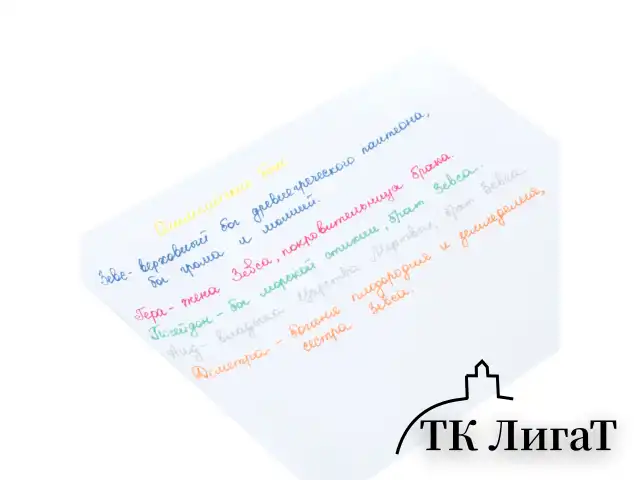 Олимпийские боги
Зевс - верховный бог древнегреческого пантеона,
бог грома и молний.
Гера - жена Зевса, покровительница брака.
Посейдон - бог морской стихии, брат Зевса.
Аид - владыка Царства Мертвых, брат Зевса.
Деметра - богиня плодородия и земледелия,
сестра Зевса.
ТК ЛигаТ